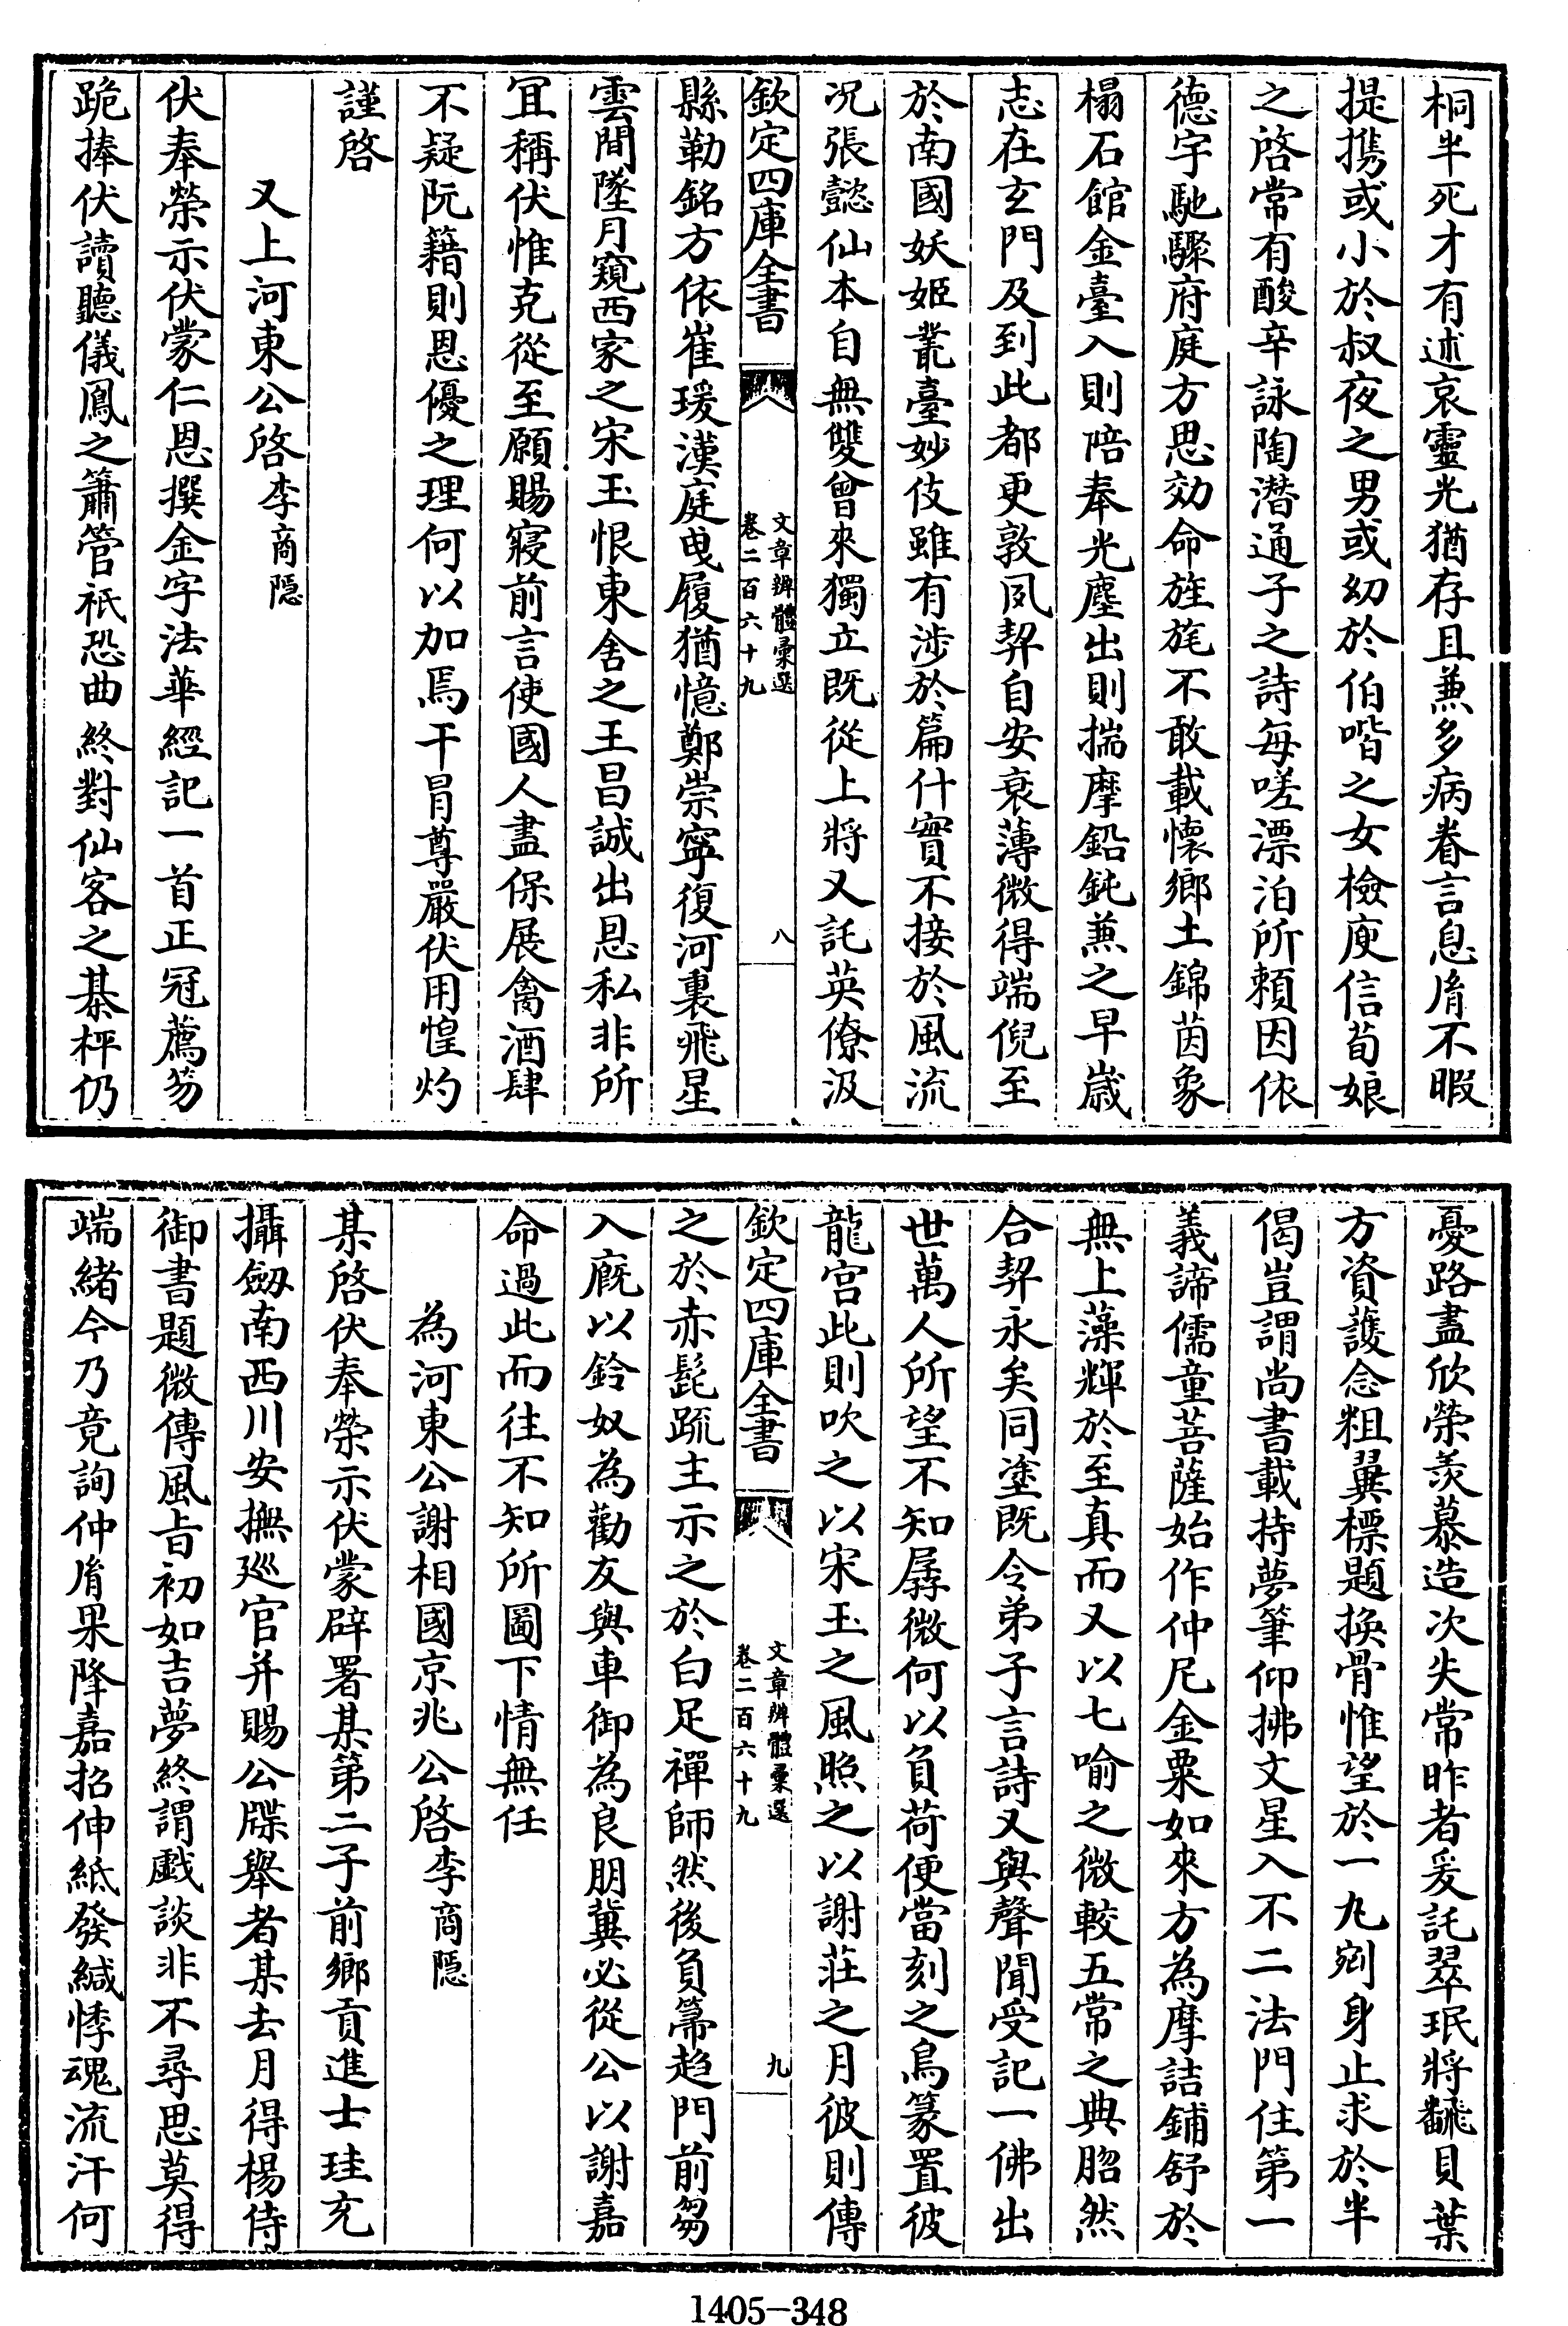 桐半死才有述哀靈光猶存且兼多病眷言息𦙍不暇
提攜或小於叔夜之男或幼於伯喈之女檢庾信荀娘
之啓常有酸辛詠陶潛通子之詩每嗟漂泊所賴因依
德宇馳驟府庭方思効命旌旄不敢載懷鄉土錦茵象
榻石館金臺入則陪奉光塵出則揣摩鉛鈍兼之早嵗
志在玄門及到此都更敦夙契自安衰薄微得端倪至
於南國妖姬叢臺妙伎雖有涉於篇什實不接於風流
况張懿仙本自無雙曾來獨立既從上將又託英僚汲
欽定四庫全書
文章辨體彙選
卷二百六十九
八
縣勒銘方依崔瑗漢庭曵履猶憶鄭崇寧復河裏飛星
雲間墜月窺西家之宋玉恨東舍之王昌誠出恩私非所
宜稱伏惟克從至願賜寢前言使國人盡保展禽酒肆
不疑阮籍則恩優之理何以加焉干冒尊嚴伏用惶灼
謹啓
又上河東公啓李商隱
伏奉榮示伏蒙仁恩撰金字法華經記一首正冠薦笏
跪捧伏讀聽儀鳳之簫管祇恐曲終對仙客之棊枰仍
憂路盡欣榮羨慕造次失常昨者爰託翠珉將翻貝葉
方資護念粗冀標題換骨惟望於一丸剜身止求於半
偈豈謂尚書載持夢筆仰拂文星入不二法門住第一
義諦儒童菩薩始作仲尼金粟如來方為摩詰鋪舒於
無上藻輝於至真而又以七喻之微較五常之典昭然
合契永矣同塗既令弟子言詩又與聲聞受記一佛出
世萬人所望不知孱微何以負荷便當刻之鳥篆置彼
龍宫此則吹之以宋玉之風照之以謝莊之月彼則傳
欽定四庫全書
文章辨體彙選
卷二百六十九
九
之於赤髭疏主示之於白足禪師然後負箒趋門前芻
入廐以鈴奴為勸友與車御為良朋冀必從公以謝嘉
命過此而往不知所圖下情無任
為河東公謝相國京兆公啓李商隱
某啓伏奉榮示伏蒙辟署某第二子前鄉貢進士珪充
攝劔南西川安撫廵官并賜公牒舉者某去月得楊侍
御書題微傳風旨初如吉夢終謂戯談非不尋思莫得
端緒今乃竟詢仲𦙍果降嘉招伸紙發緘悸魂流汗何
1405-348